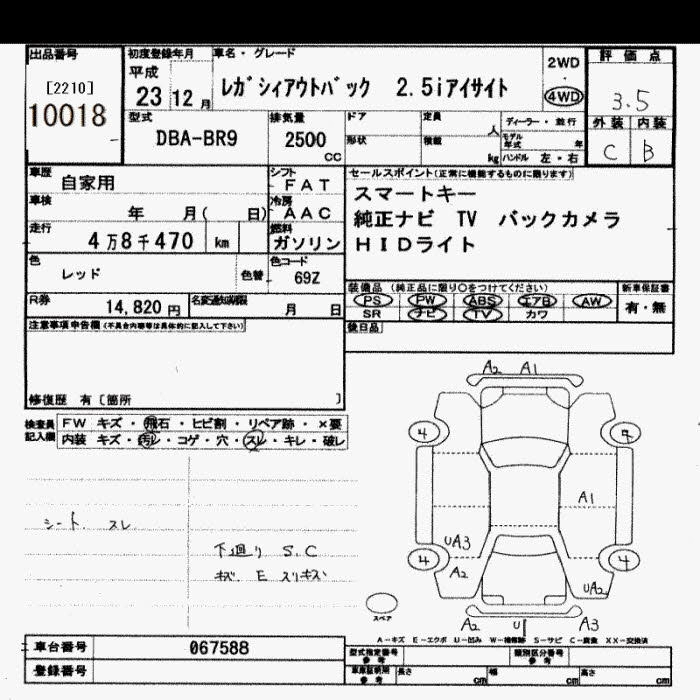 出品番号
[2210]
10018
初度登録年月
平成
23 12 月
車名・グレード
レガシィアウトバック 2.5iアイサイト
2WD
・
4WD
評価点
3.5
外装 内装
C B
型式
DBA-BR9
排気量
2500
CC
ドア 定員
人
形状 積載
kg
ディーラー・並行
モデル年式 年
ハンドル 左・右
車歴
自家用
シフト
FAT
車検
年 月( 日)
冷房
AAC
走行
4万8千470 km
燃料
ガソリン
色
レッド
色替
色コード
69Z
R券
14,820 円
月 日
セールスポイント(正常に機能するものに限ります)
スマートキー
純正ナビ TV バックカメラ
HIDライト
装備品 (純正品に限り○をつけてください)
新車保証書
PS PW ABS エアB AW
SR ナビ TV カワ
有・無
後日品
注意事項申告欄(不具合内容等は具体的に記入して下さい)
修復歴 有 [箇所 ]
検査員記入欄
FW キズ・飛石・ヒビ割・リペア跡・×要
内装 キズ・汚レ・コゲ・穴・スレ・キレ・破レ
シート スレ
下廻り S.C
キズ E スリキズ
A2 A1
4
4
A1
UA3
A2
4
4
UA2
A2 U A3
スペア
A-キズ E-エクボ U-凹み W-補修跡 S-サビ C-腐食 XX-交換済
車台番号 067588
登録番号
型式指定番号 参考
類別区分番号 参考
車庫証明用 参考
長さ cm
幅 cm
高さ cm